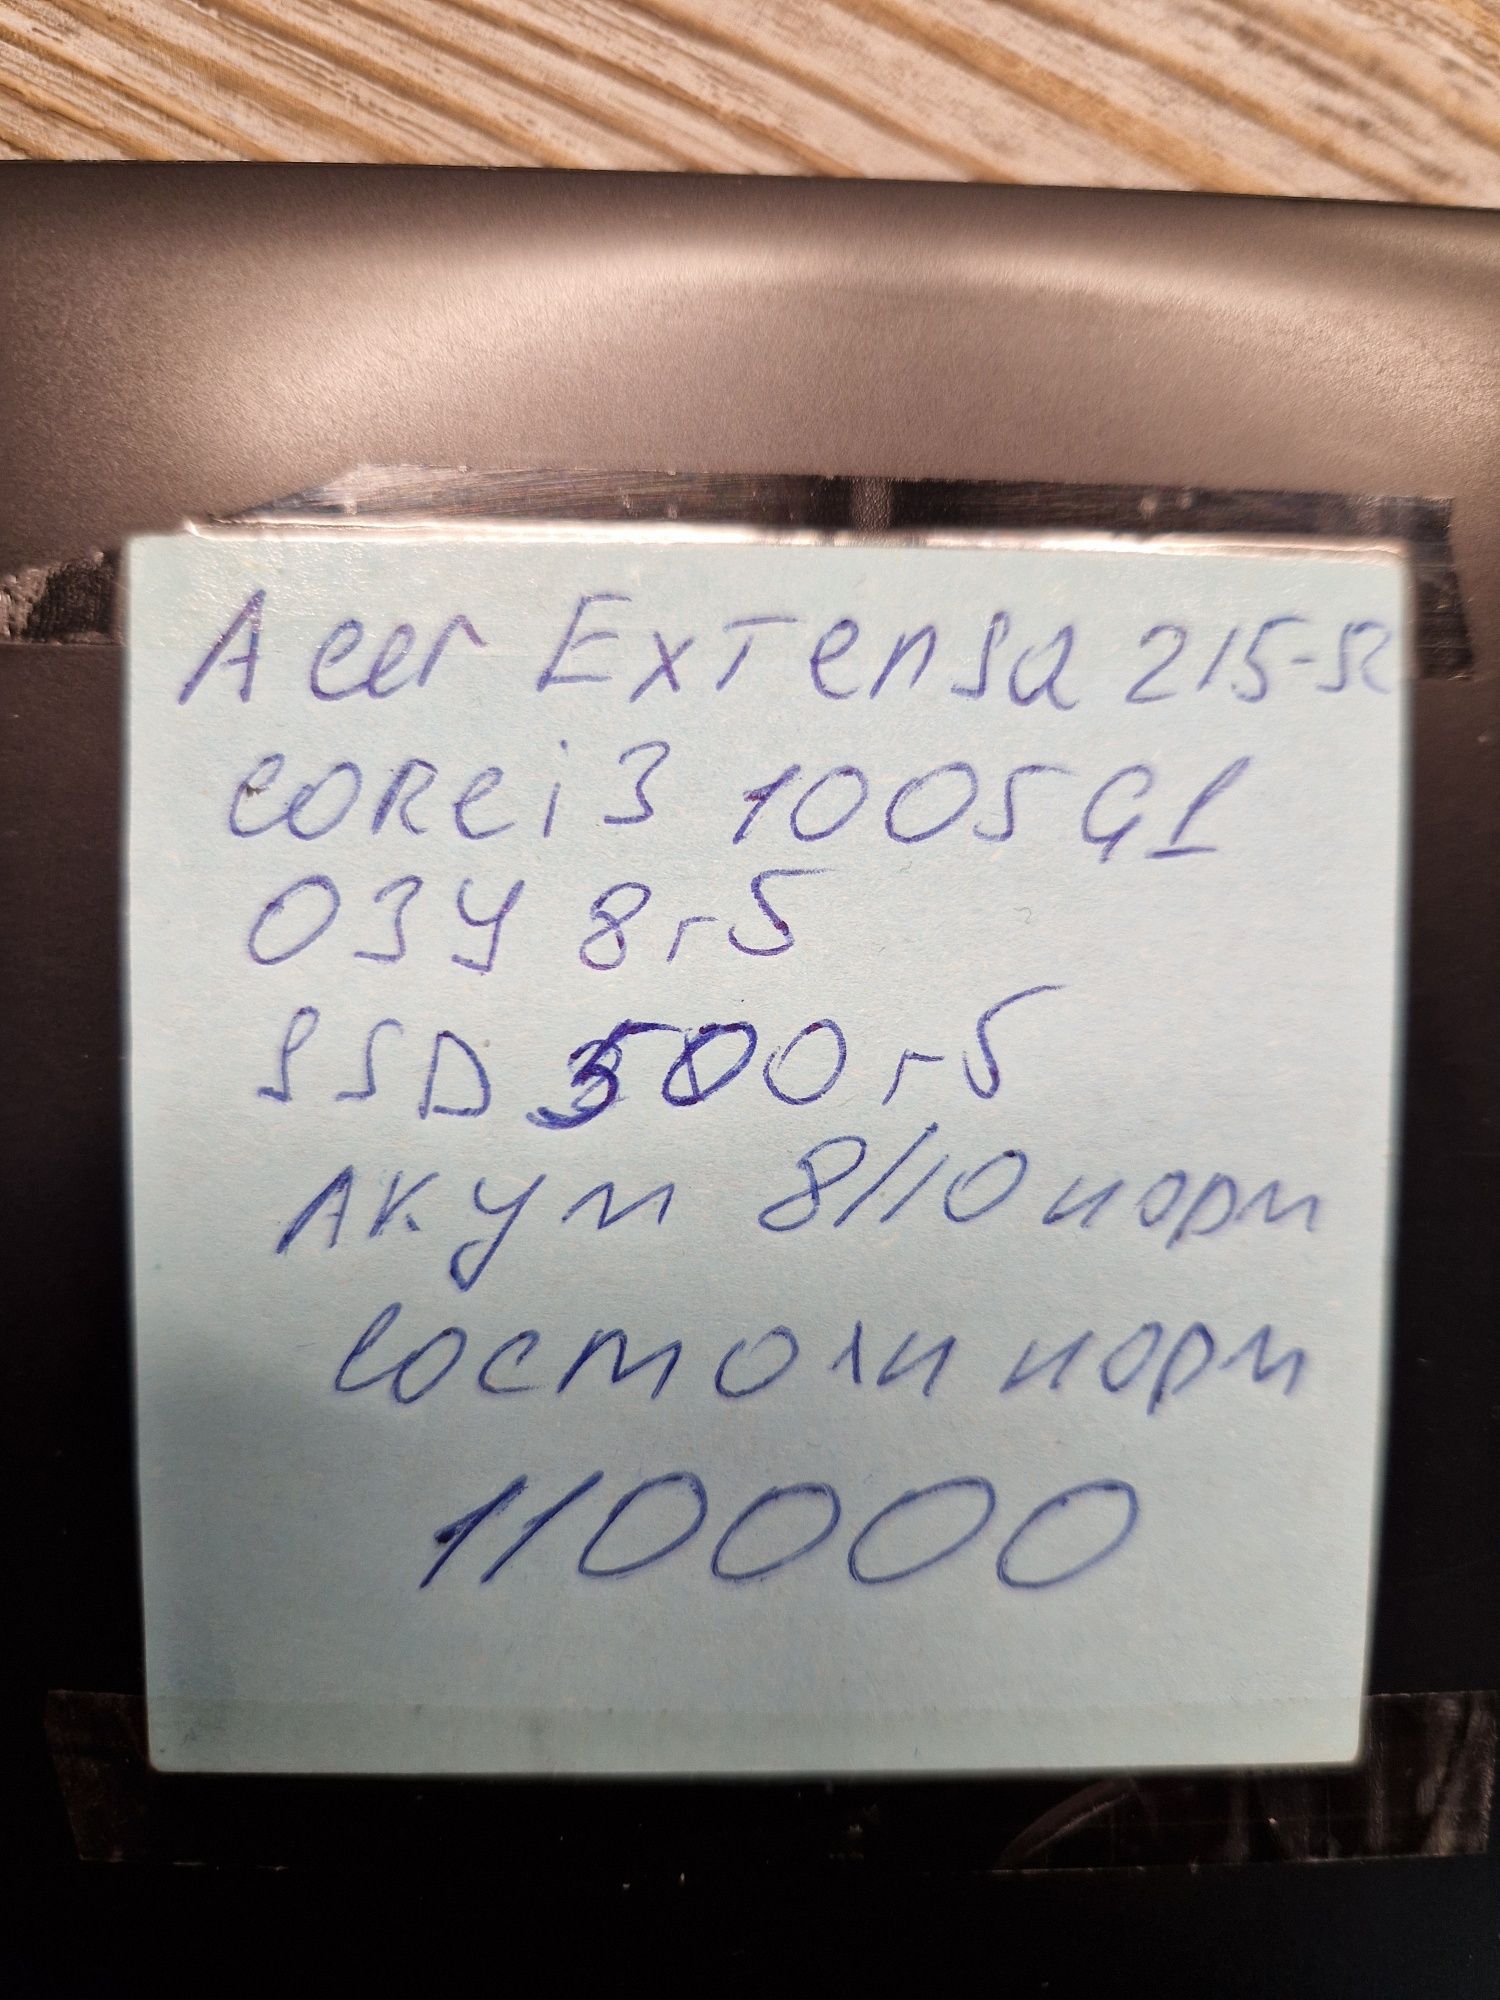 Acer Extensa 215-52
corei3 1005G1
ОЗУ 8гб
SSD 500гб
Акум 8/10 норм
Состоян норм
110000